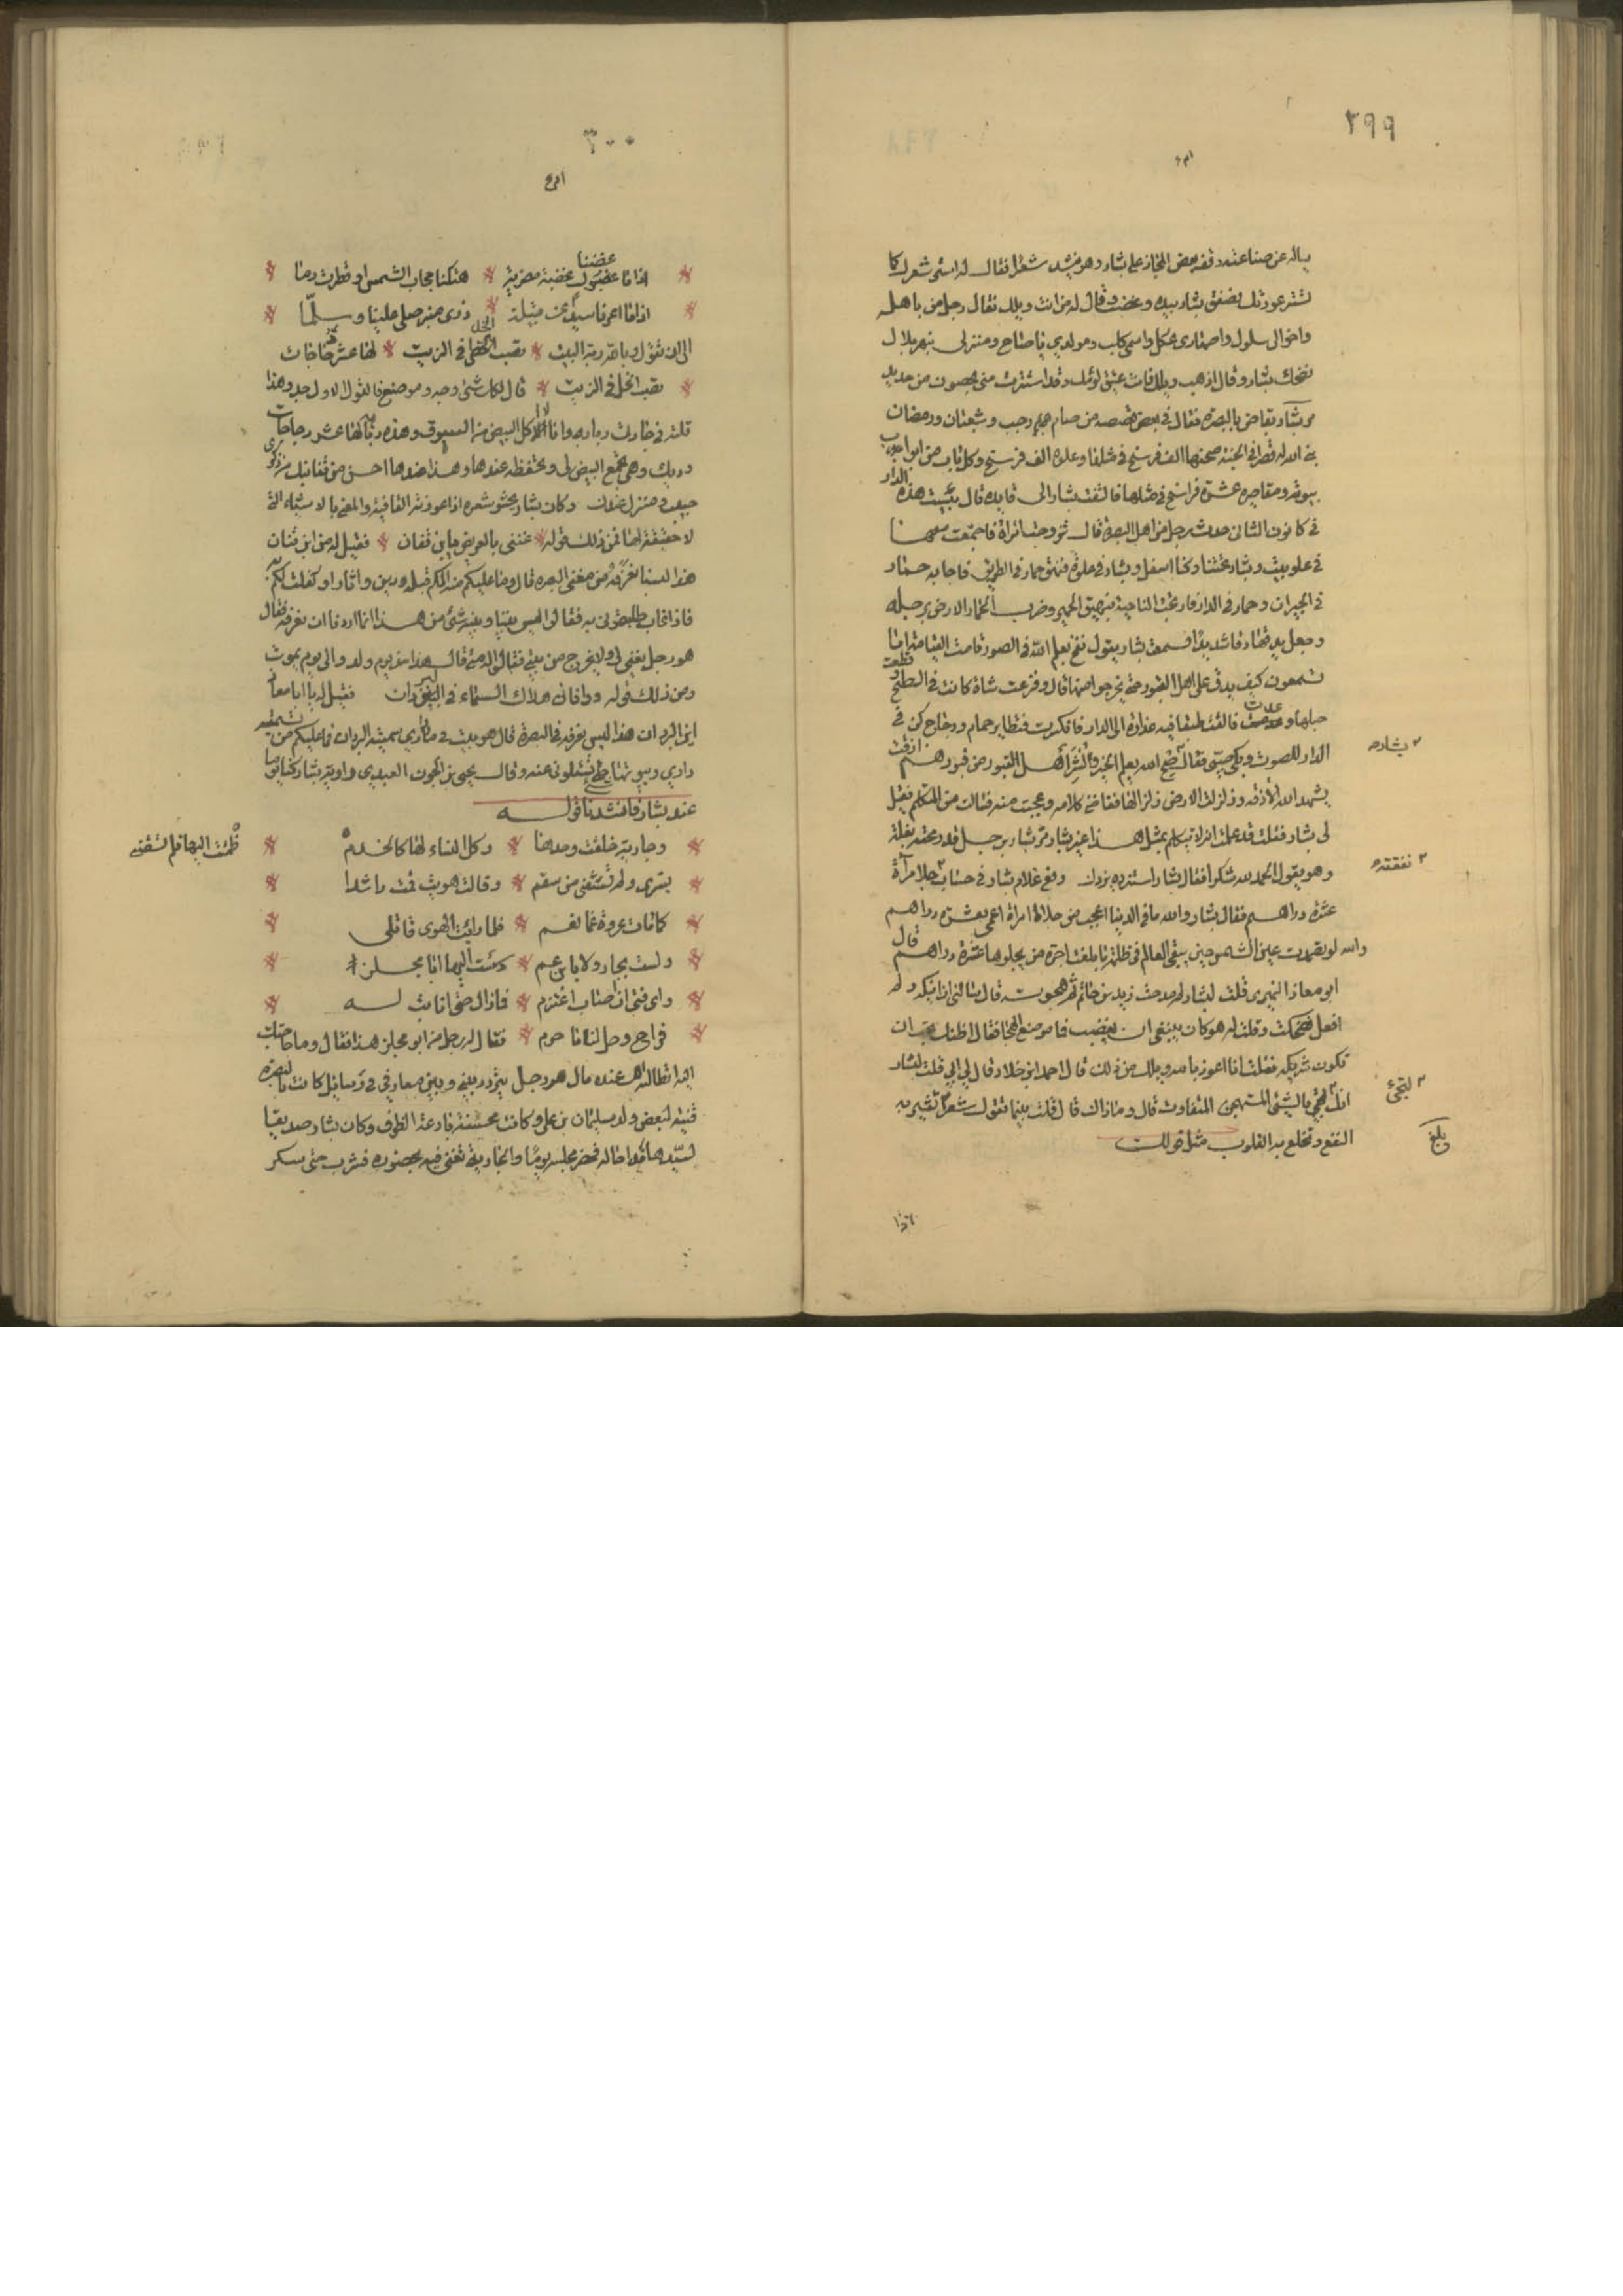 ٢٩٩
يساله عن صناعته وقف بعض المجاز على بشار وهو ينشد شعرا فقال له استر شعرك كما
تستر عورتك فصفق بشار بيديه وغضب وقال له من انت ويلك فقال رجل من باهله
واخوالى سلول واصهارى عكل واسمى كلب ومولدى باضاخ ومنزلى بنهر بلال
فضحك بشار وقال اذهب ويلك فانت عتيق لؤمك وقد استترت منى بحصون من حديد
مر بشار بقاص بالبصرة فقال فى بعض قصصه من صام رجب وشعبان ورمضان
بنى الله له قصرا فى الجنة صحنها الف فرسخ فى مثلها وعلوه الف فرسخ وكل باب من ابواب
بيوته ومقاصيره عشرة فراسخ فى مثلها فالتفت بشار الى قايده فقال بئست هذه الدار
فى كانون الثانى حدث رجل من اهل البصرة قال تزوجت امراة فاجتمعت معها
فى علو بيت وبشار تحتنا وكنا اسفل وبشار فى علوه فنهق حمار فى الطريق فاجابه حمار
فى الجيران وحمار فى الدار فارتجت الناحية بنهيق الحمير وضرب الحمار الارض برجله
وجعل يدقها دقا شديدا فسمعت بشار يقول نفخ يعلم الله فى الصور وقامت القيامة اما
تسمعون كيف يدق على اهل القبور حتى يخرجوا منها قال وفزعت شاة كانت فى السطح فقطعت
حبلها وعدت فالقت طبقا فيه غضارة الى الدار فانكسرت فتطاير حمام ودجاج كن فى
الدار للصوت وبكى صبى فقال صح الله يعلم الخبر ونشر اهل القبور من قبورهم ازفت
يشهد الله الآزفه وزلزلت الارض زلزالها فقامنى كلامه وعجبت منه فسالت من المتكلم فقيل
لى بشار فقلت قد علمت انه لا يتكلم بمثل هذا غير بشار مر بشار برجل قد رمحته بغلة
وهو يقول الحمد لله شكرا فقال بشار استزده يزدك رفع غلام بشار فى حساب جلا مرآة
عشرة دراهم فقال بشار والله ما فى الدنيا اعجب من جلاء مرآة اعمى بعشرة دراهم
والله لو صديت عين الشمس حتى يبقى العالم فى ظلمة ما بلغت اجرة من يجلوها عشرة دراهم قال
ابو معاذ النميرى قلت لبشار لم مدحت يزيد بن حاتم ثم هجوته قال سالنى ان انيكه ولم
افعل فضحكت وقلت له هو كان ينبغى ان يغضب فما موضع الهجا فقال اظنك تحب ان
تكون شريكه فقلت انا اعوذ بالله ويلك من ذلك قال احمد ابن خلاد قال لى ابى قلت لبشار
انك لتجى بالشئ المستهجن المتفاوت قال وما ذاك قال قلت بينما تقول شعرا تثير به
النقع وتخلع به القلوب مثل قولك
بشار
نفقته
لتجئ
بلغ
اذا
٣٠٠
غضبنا
اذا ما غضبنا غضبة مضرية * هتكنا حجاب الشمس او قطرت دما
اذا ما اعرنا سيدا من قبيلة * ذرى منبر صلى علينا وسلما
الى ان تقول ربابة ربة البيت * تصب الخل فى الزيت * لها عشر دجاجات
تصب الخل فى الزيت * قال لكل شئ وجه وموضع فالقول الاول جد وهذا
قلته فى جاريتى ربابه وانا لا اكل البيض من السوق وهذه ربابة لها عشر دجاجات
وديك وهى تجمع البيض لى وتحفظه عندها وهذا عندها احسن من قفا نبك من ذكرى
حبيب ومنزل عندك وكان بشار يحشو شعره اذا اعوزته القافية والمعنى بالاشياء التى
لا حقيقة لها فمن ذلك قوله * غننى بالغريض يا ابن قنان * فقيل له من ابن قنان
هذا لسنا نعرفه من مغنى البصرة قال وما عليكم منه الكم قبله دين او ثار او كفلت لكم به
فاذا غاب طلبتمونى به فقالوا ليس بيننا وبينه شئ من هذا انما اردنا ان نعرفه فقال
هو رجل يغنى لى ولا يخرج من بيتى فقالوا الى متى قال مذ يوم ولد والى يوم يموت
ومن ذلك قوله ووافانى هلاك السماء فى البردان فقيل له يا ابا معاذ
اين البردان هذا ليس نعرفه فى البصرة قال هو بيت فى دارى سميته البردان فما عليكم من تسميته
دارى وبيوتها شئ فتسئلونى عنه وقال يحيى بن الجون العبدى راوية بشار كنا يوما
عند بشار فانشدنا قوله
وجارية خلقت وحدها * وكل النساء لها كالخدم
بسرى ولم تشفنى من سقم * وقالت هويت فمت راشدا
كما مات عروة غما بغم * فلما رايت الهوى قاتلى
ولست بجار ولا بابن عم * دسست اليها ابا مجلز
واى فتى ان اصاب اعتزم * فما زال حتى انابت له
فراح وحل لنا ما حرم * فقال له رجل من ابو مجلز هذا فقال وما حاجتك
اليه اتطالبه عنده مال هو رجل يتردد بينى وبين معارفى فى رسايل كانت بالبصرة
قينة لبعض ولد سليمان بن على وكانت محسنة بارعة الظرف وكان بشار صديقا
لسيدها ومداحا له فحضر مجلسه يوما والجارية تغنى فيه بحضوره فشرب حتى سكر
ظمئت اليها فلم تسقنى